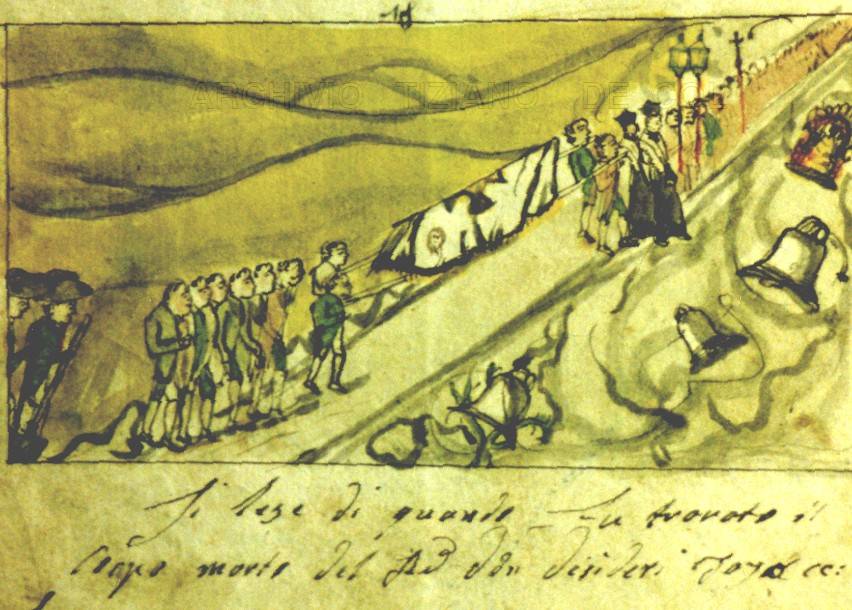 ARCHIVIO TIZIANO DE
Si lege di quando fu trovato il
Corpo morto del Rd don Desideri